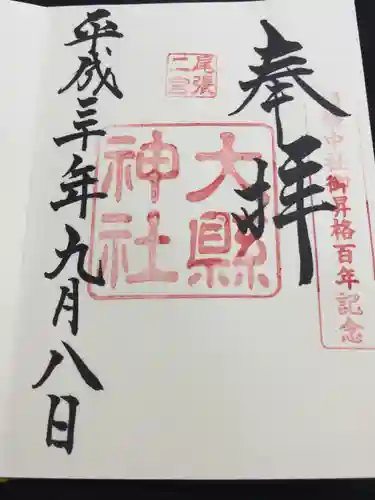 中社御昇格百年記念
奉拝
尾張二宮
大縣神社
平成三十年九月八日